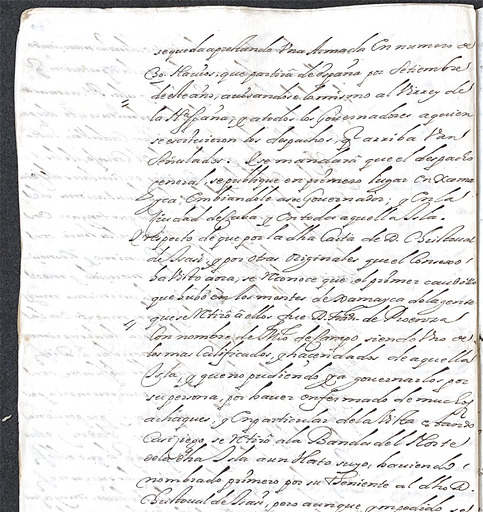 se queda aprestando Una Armada En numero de
30. Nauios, que partirá de españa por Setiembre
deste año, auisandose lo mismo al Virrey de
la Na. españa, y a todos los Gouernadores a quien
se escriuieron los despachos, q arriba Van
Señalados. Y se mandará que el despacho
general, se publique en primero lugar en Xama
yca, embiandole a su Gouernador, y En la
Ciudad de Cuba, y En toda aquella Isla.
Y respecto de que por la dha Carta de D. Christoual
de Isasi, y por otras originales que el Consejo
ha Visto aora, se reconoce que el primer caudillo
que hubo en los montes de Xamayca de la gente
que se retiró a ellos fue D. Franco. de Proenza
Con nombre de Mro de Campo, siendo Uno de
los mas Calificados, y hacendados de aquella
Isla, y que no pudiendo ya gouernarlos por
su persona, por hauer enfermado de muchos
achaques, y En particular de la Vista estando
Casi ciego, se retiró a la Banda del Norte
de la dha Isla a un Hato suyo, hauiendo
nombrado primero por su Theniente al dho D.
Christoual de Isasi, pero aunque impedido se